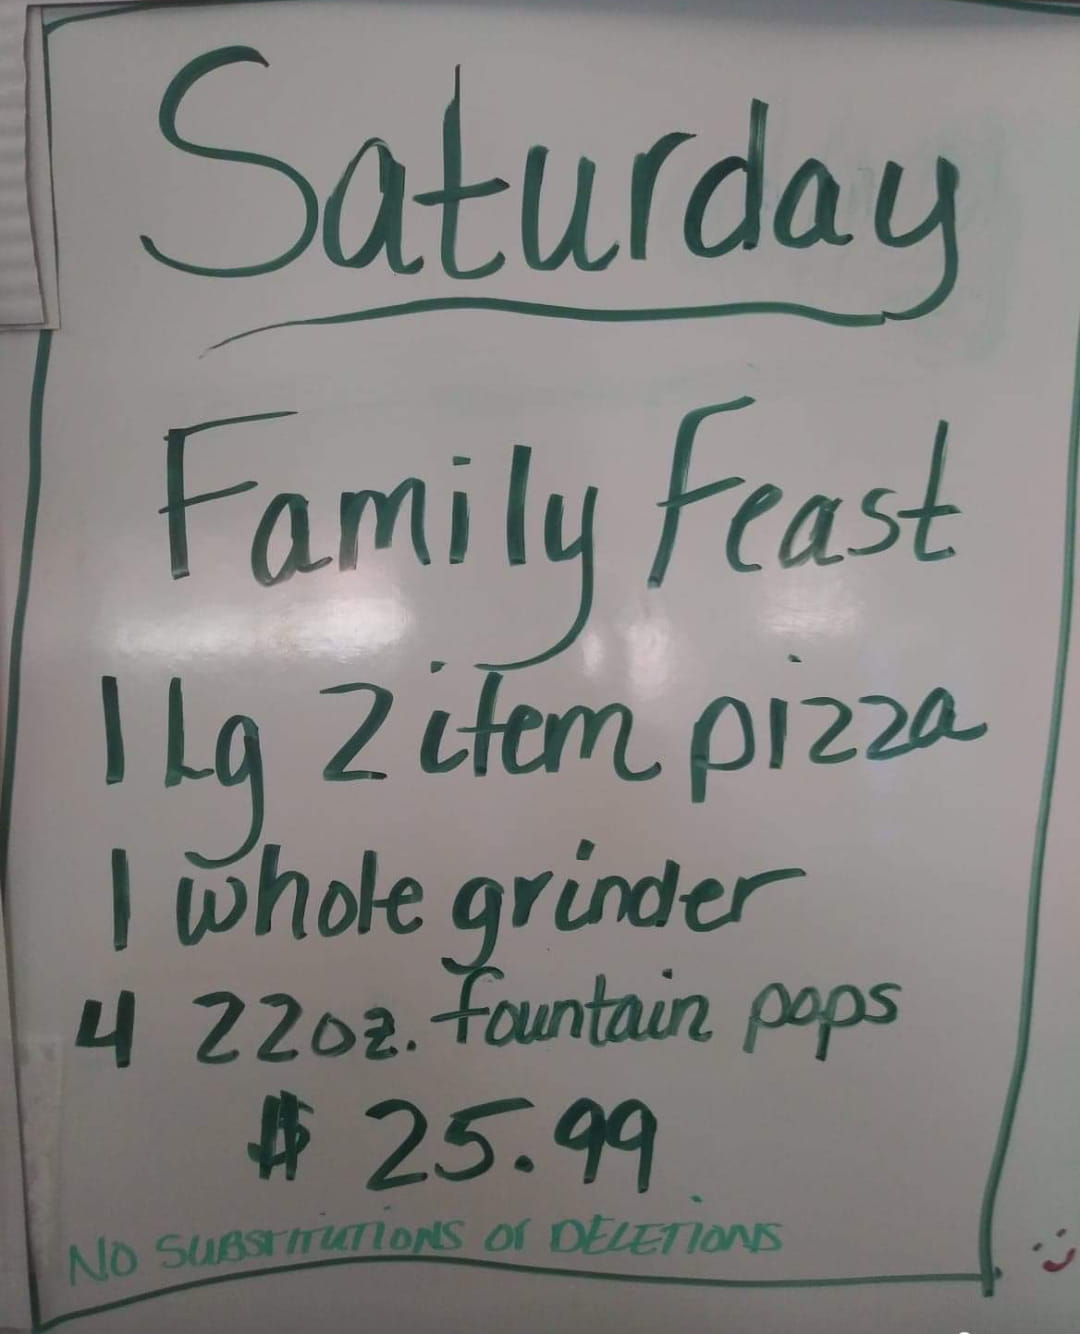 Saturday
Family Feast
1 Lg 2 item pizza
1 whole grinder
4 22oz. fountain pops
$ 25.99
NO SUBSTITUTIONS or DELETIONS